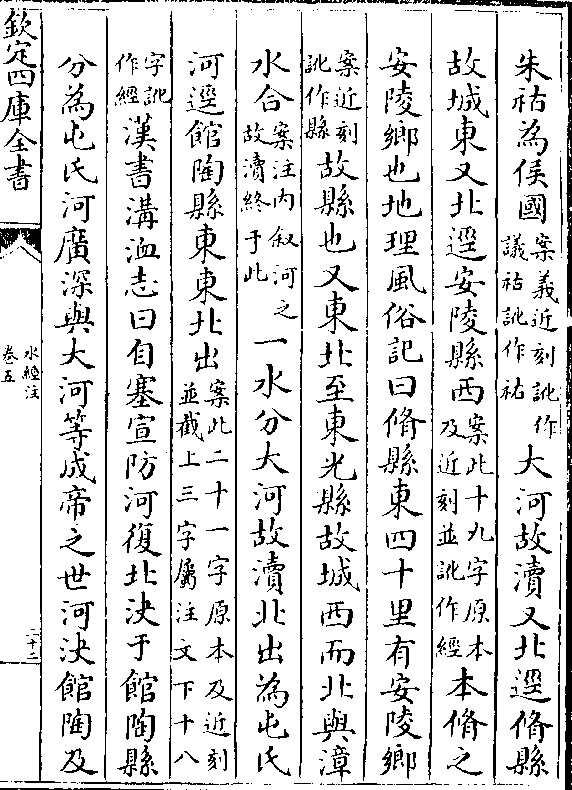 朱祜為侯國案義近刻訛作議祜訛作祐大河故瀆又北逕脩縣
故城東又北逕安陵縣西案此十九字原本及近刻並訛作經本脩之
安陵鄉也地理風俗記曰脩縣東四十里有安陵鄉
案近刻訛作縣故縣也又東北至東光縣故城西而北與漳
水合案注内叙河之故瀆終于此一水分大河故瀆北出為屯氏
河逕館陶縣東東北出案此二十一字原本及近刻並截上三字屬注文下十八
字訛作經漢書溝洫志曰自塞宣防河復北決于館陶縣
分為屯氏河廣深與大河等成帝之世河決館陶及
欽定四庫全書
水經注
卷五
三十二